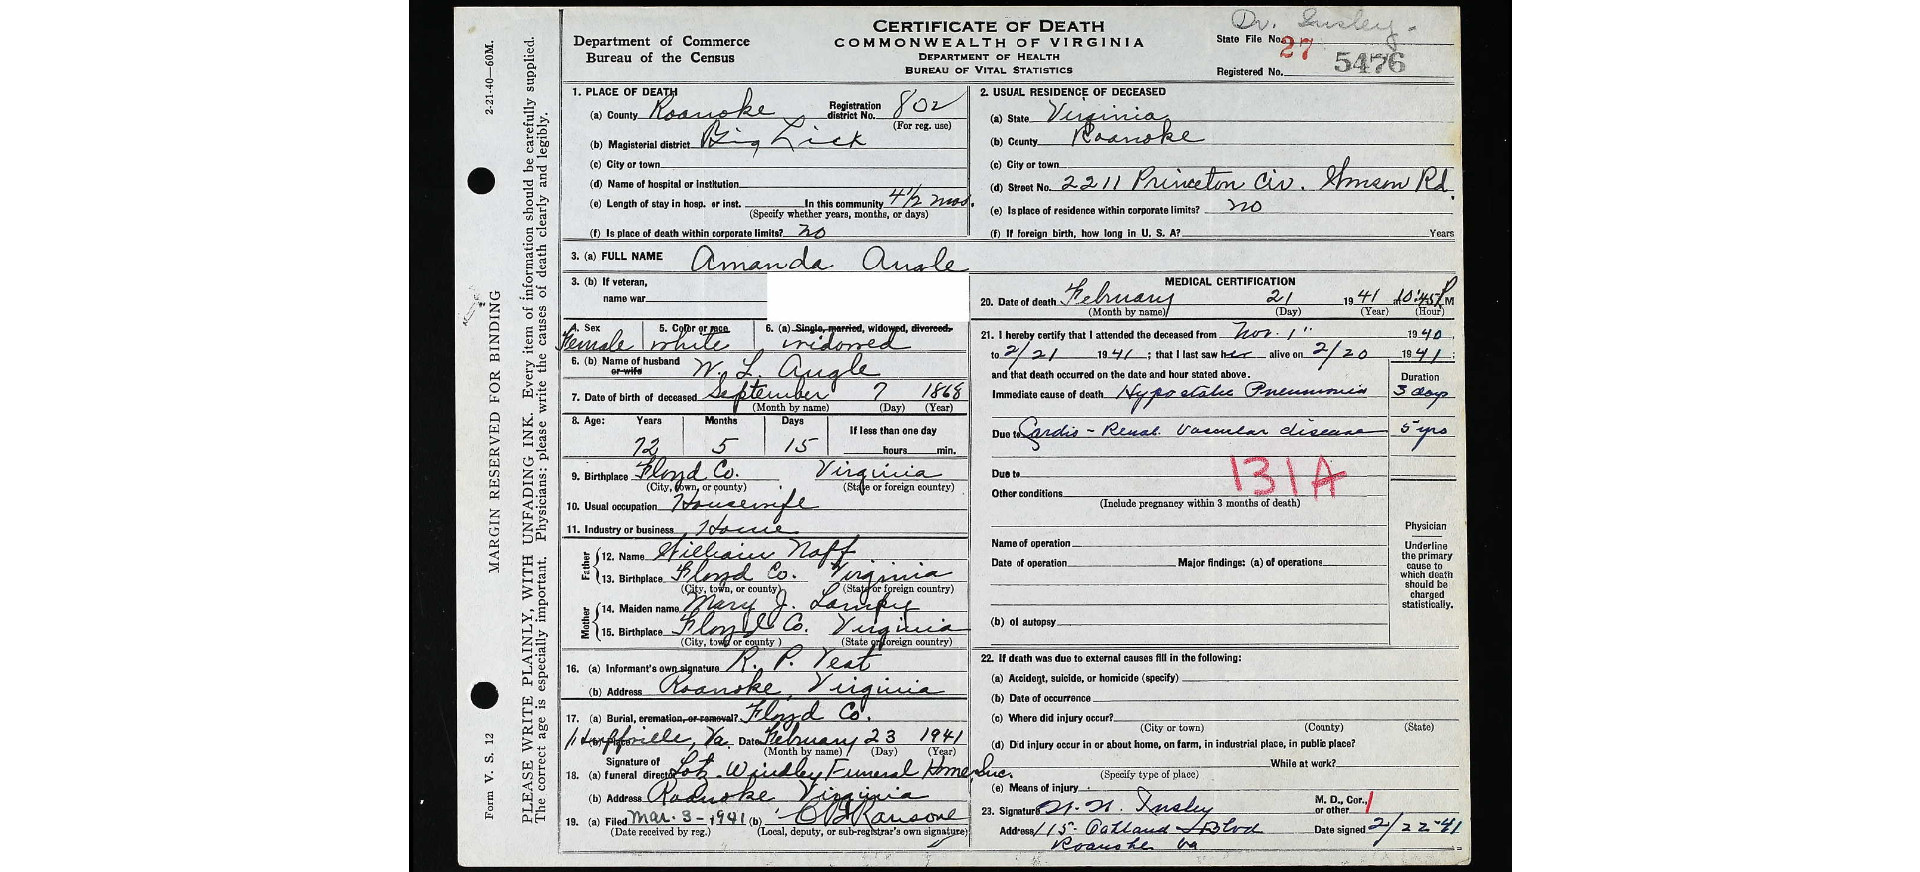 Dr. Insley.
CERTIFICATE OF DEATH
COMMONWEALTH OF VIRGINIA
DEPARTMENT OF HEALTH
BUREAU OF VITAL STATISTICS
Department of Commerce
Bureau of the Census
State File No. 27
Registered No. 5476
2-21-40—60M.
MARGIN RESERVED FOR BINDING
Form V. S. 12
PLEASE WRITE PLAINLY, WITH UNFADING INK. Every item of information should be carefully supplied.
The correct age is especially important. Physicians: please write the causes of death clearly and legibly.
1. PLACE OF DEATH
(a) County Roanoke Registration district No. 802
(For reg. use)
(b) Magisterial district Big Lick
(c) City or town
(d) Name of hospital or institution
(e) Length of stay in hosp. or inst. In this community 4 1/2 mos.
(Specify whether years, months, or days)
(f) Is place of death within corporate limits? no
2. USUAL RESIDENCE OF DECEASED
(a) State Virginia
(b) County Roanoke
(c) City or town
(d) Street No. 2211 Princeton Cir. Rd
(e) Is place of residence within corporate limits? no
(f) If foreign birth, how long in U. S. A? Years
3. (a) FULL NAME Amanda Angle
3. (b) If veteran,
name war
4. Sex 5. Color or race 6. (a) Single, married, widowed, divorced.
Female white widowed
6. (b) Name of husband or wife W. L. Angle
7. Date of birth of deceased September 7 1868
(Month by name) (Day) (Year)
8. Age: Years Months Days If less than one day
72 5 15 hours min.
9. Birthplace Floyd Co. Virginia
(City, town, or county) (State or foreign country)
10. Usual occupation Housewife
11. Industry or business Home
Father
12. Name William Naff
13. Birthplace Floyd Co. Virginia
(City, town, or county) (State or foreign country)
Mother
14. Maiden name Mary J.
15. Birthplace Floyd Co. Virginia
(City, town or county ) (State or foreign country)
16. (a) Informant's own signature R. P. Vest
(b) Address Roanoke, Virginia
17. (a) Burial, cremation, or removal? Floyd Co.
(b) Place Huffville, Va. Date February 23 1941
(Month by name) (Day) (Year)
18. Signature of
(a) funeral director Lotz Windley Funeral Home Inc.
(b) Address Roanoke Virginia
19. (a) Filed Mar. 3-1941 (b) Ransone
(Date received by reg.) (Local, deputy, or sub-registrar's own signature)
MEDICAL CERTIFICATION
20. Date of death February 21 1941 at 10:45 P M
(Month by name) (Day) (Year) (Hour)
21. I hereby certify that I attended the deceased from Nov. 1" 1940,
to 2/21 1941; that I last saw her alive on 2/20 1941;
and that death occurred on the date and hour stated above.
Duration
Immediate cause of death Hypostatic Pneumonia 3 days
Due to Cardio-Renal Vascular disease 5 yrs
Due to
131A
Other conditions
(Include pregnancy within 3 months of death)
Name of operation
Date of operation Major findings: (a) of operations
(b) of autopsy
Physician
Underline
the primary
cause to
which death
should be
charged
statistically.
22. If death was due to external causes fill in the following:
(a) Accident, suicide, or homicide (specify)
(b) Date of occurrence
(c) Where did injury occur?
(City or town) (County) (State)
(d) Did injury occur in or about home, on farm, in industrial place, in public place?
While at work?
(Specify type of place)
(e) Means of injury
23. Signature Insley M. D., Cor., or other
Address 115 Oakland Blvd Date signed 2/22-41
Roanoke Va